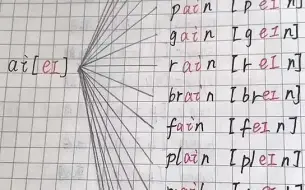 pain [peɪn]
gain [geɪn]
rain [reɪn]
ai [eɪ]
brain [breɪn]
fain [feɪn]
plain [pleɪn]